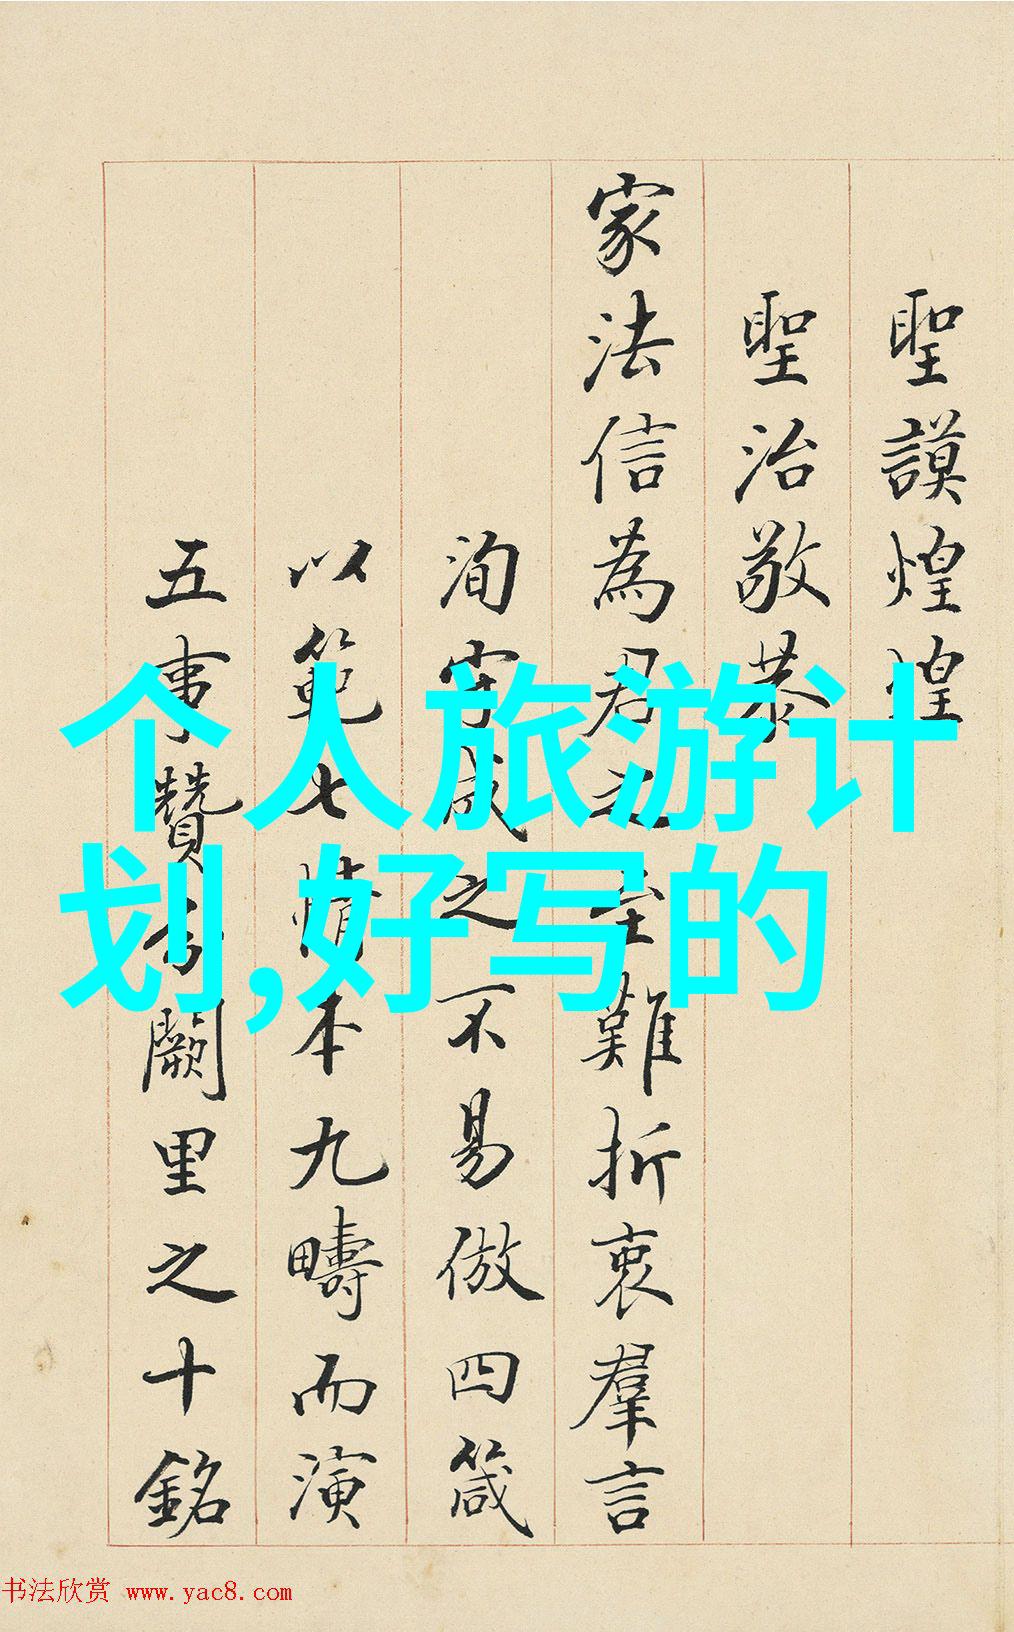 聖謨煌煌
聖治敬恭
家法信為君之至難折衷羣言
洵守成之不易倣四箴
以範七情本九疇而演
五事贊為闕里之十銘
个人旅游计
划,好写的
书法欣赏 www.yac8.com